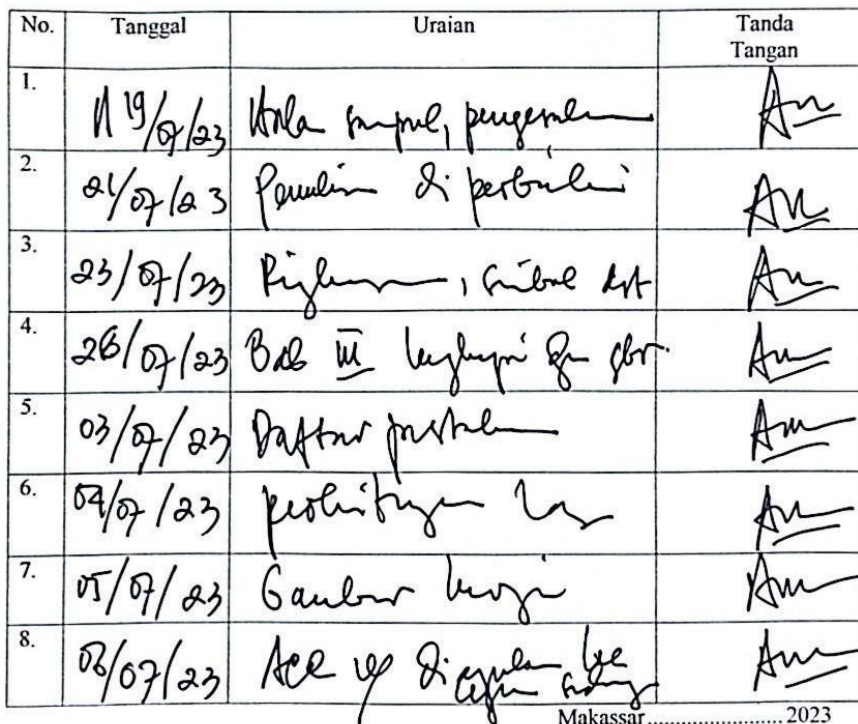 No. Tanggal Uraian Tanda
Tangan
1. 19/07/23 sampul, pengesahan
2. 21/07/23 Penulisan di perbaiki
3. 23/07/23 Ringkasan, simbol dst
4. 26/07/23 Bab III lengkapi dgn gbr.
5. 03/07/23 Daftar pustaka
6. 04/07/23 perhitungan
7. 05/07/23 Gambar
8. 06/07/23 Acc di ajukan ke
Makassar........................ 2023